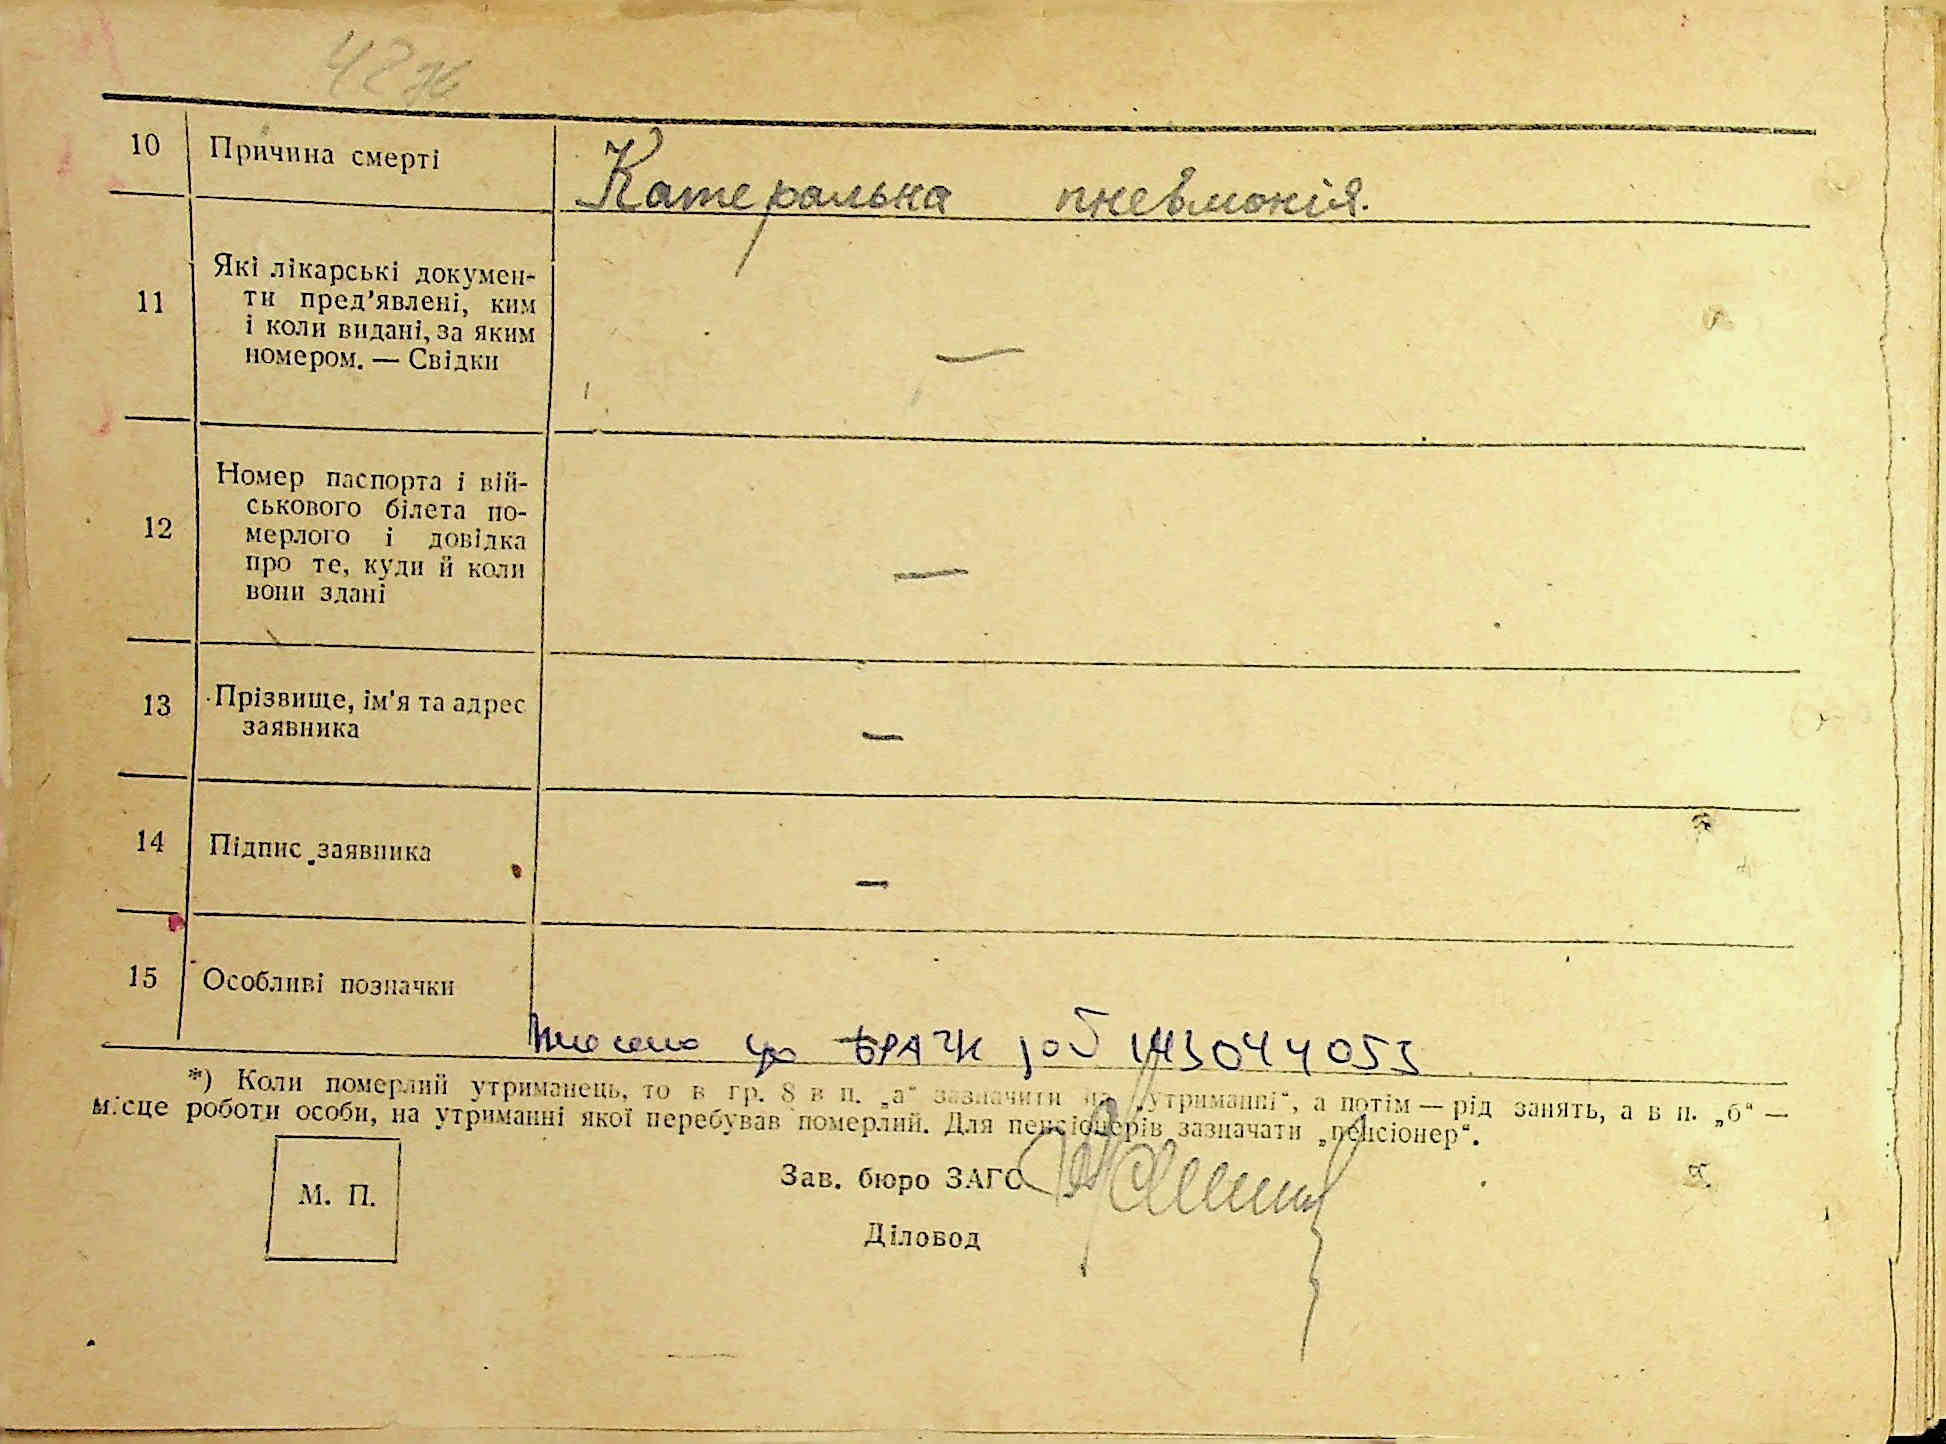 42ж
10 Причина смерті Катеральна пневмонія.
11 Які лікарські докумен-
ти пред'явлені, ким
і коли видані, за яким
номером. — Свідки —
12 Номер паспорта і вій-
ськового білета по-
мерлого і довідка
про те, куди й коли
вони здані —
13 Прізвище, ім'я та адрес
заявника —
14 Підпис заявника —
15 Особливі позначки
до ДРАЦС
*) Коли померлий утриманець, то в гр. 8 в п. „а" зазначити на „утриманні", а потім — рід занять, а в п. „б" —
місце роботи особи, на утриманні якої перебував померлий. Для пенсіонерів зазначати „пенсіонер".
М. П.
Зав. бюро ЗАГС
Діловод